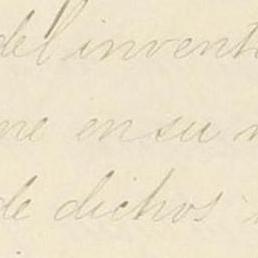 del invent
ne en su
de dichos